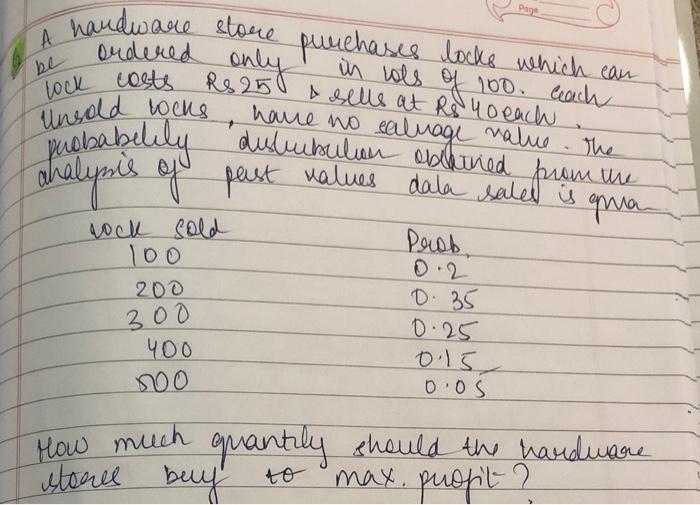 Page
A hardware store purchases locks which can
be ordered only in lots of 100. each
lock costs Rs 25 & sells at Rs 40 each.
Unsold locks, have no salvage value. The
probability distribution obtained from the
analysis of past values data sales is given
lock sold Prob.
100 0.2
200 0.35
300 0.25
400 0.15
500 0.05
How much quantity should the hardware
stores buy to max. profit?